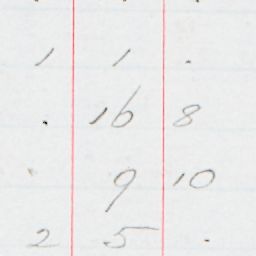 1 1 .
. 16 8
. 9 10
2 5 .